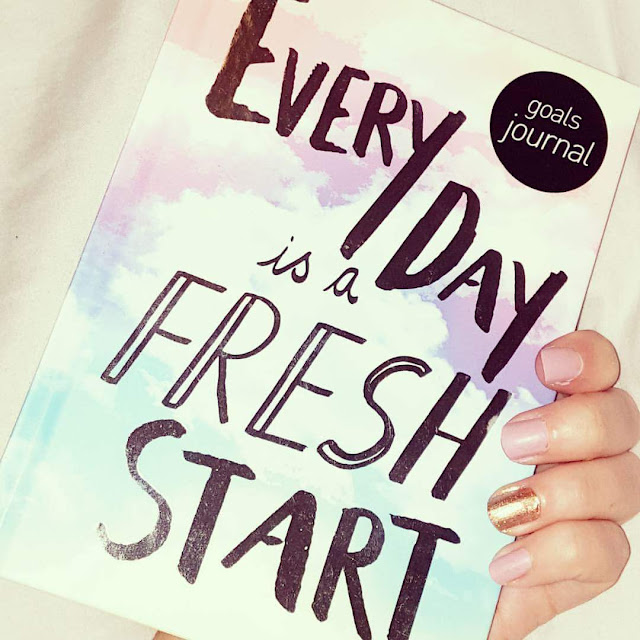 EVERY
DAY
is a
FRESH
START
goals
journal